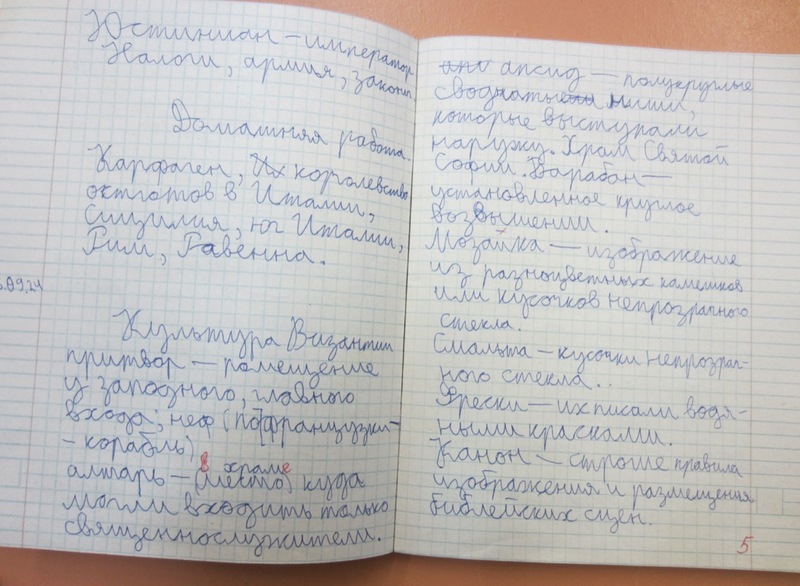 Юстиниан – император
Налоги, армия, закон
Домашняя работа.
Карфаген, королевство
остготов в Италии,
Сицилия, юг Италии,
Рим, Равенна.
.09.24
Культура Византии
притвор – помещение
у западного, главного
входа; неф (по французки-
- корабль)
в храме
алтарь – (место) куда
могли входить только
священнослужители.
апсид – полукруглые
сводчатые ниши,
которые выступали
наружу. Храм Святой
Софии. Барабан –
установленное круглое
возвышении.
Мозайка – изображение
из разноцветных камешков
или кусочков непрозрачного
стекла.
Смальта – кусочки непрозрач-
ного стекла..
Фрески – их писали водя-
ными красками.
Канон – строгие правила
изображения и размещения
библейских сцен.
5